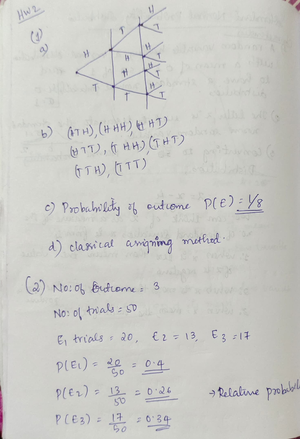 HW2.
(1)
a)
H
T
T
H
T
H
T
H
T
H
T
H
T
b) (HTH), (HHH), (HHT)
(HTT), (THH) (THT)
(TTH), (TTT)
c) Probability of outcome P(E) = 1/8
d) classical assigning method.
(2) No: of outcome = 3
No: of trials = 50
E1 trials = 20, E2 = 13, E3 = 17
P(E1) = 20/50 = 0.4
P(E2) = 13/50 = 0.26 → Relative probab
P(E3) = 17/50 = 0.34